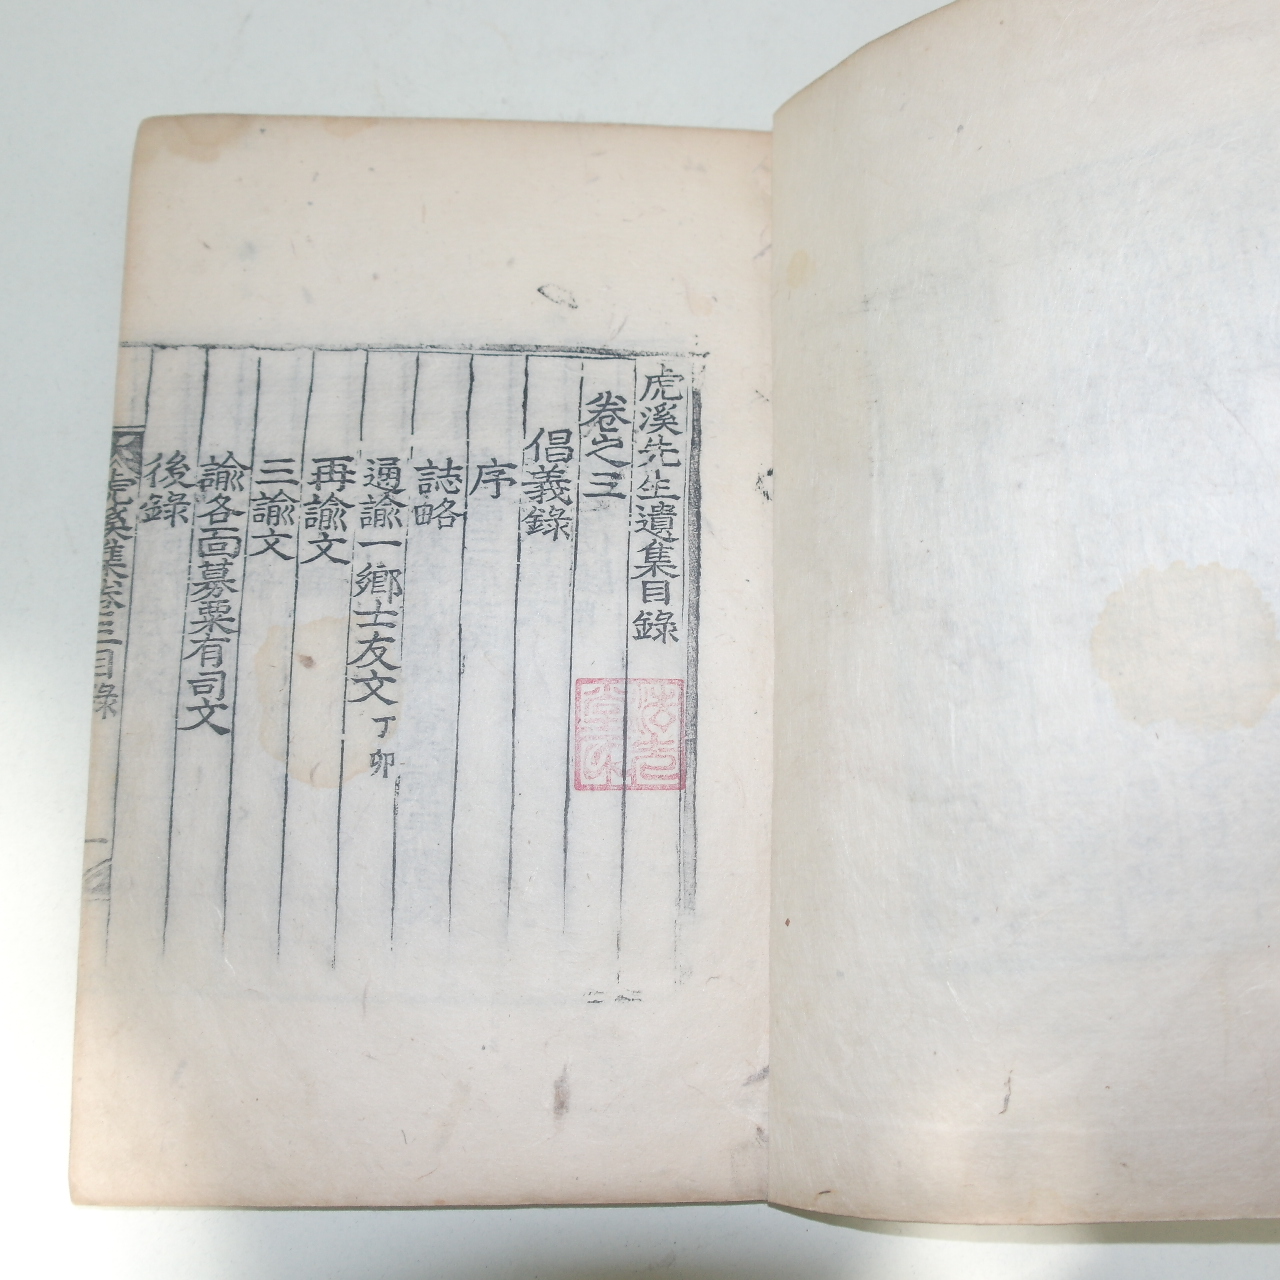 虎溪先生遺集目錄
卷之三
倡義錄
序
誌略
通諭一鄉士友文 丁卯
再諭文
三諭文
諭各面募粟有司文
後錄
虎溪集卷三目錄
一